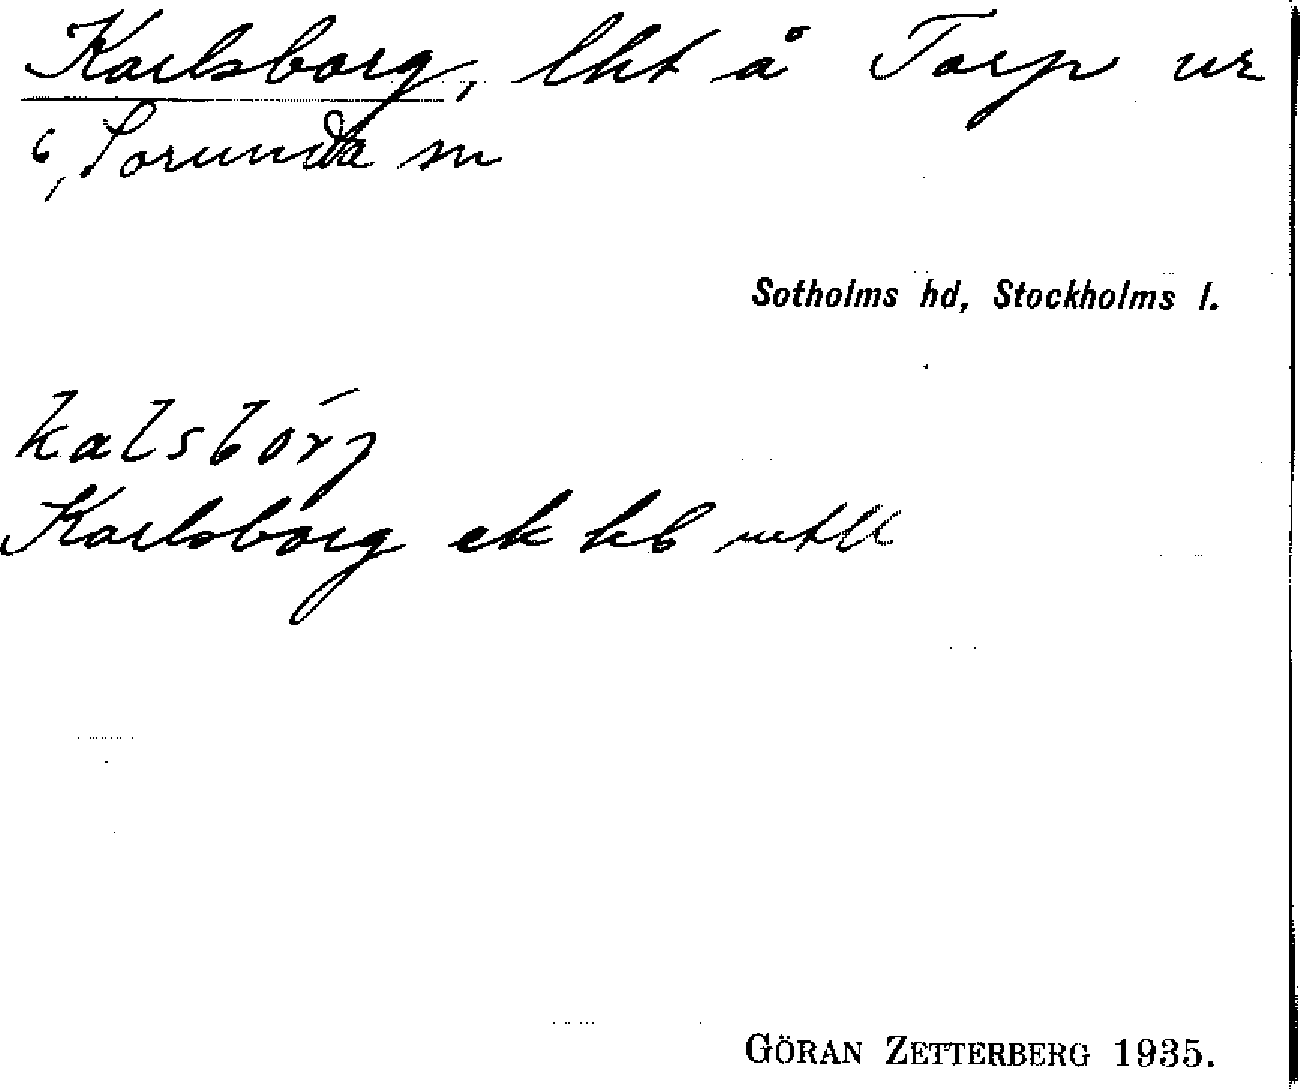 Karlsborg, lht å Torp nr
6, Sorunda sn
Sotholms hd, Stockholms l.
kalsbórj
Karlsborg ek kb
GÖRAN ZETTERBERG 1935.